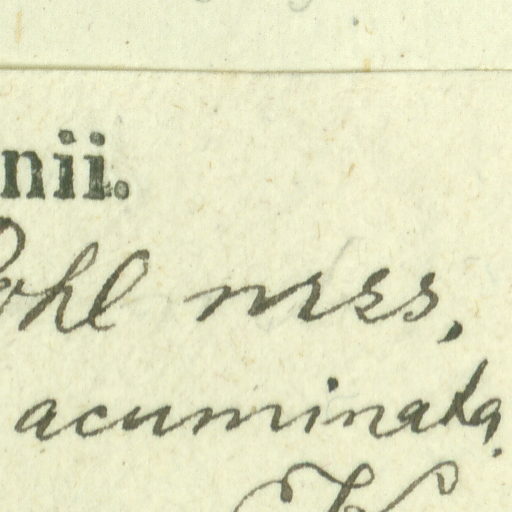 nii.
ohl mss,
acuminata